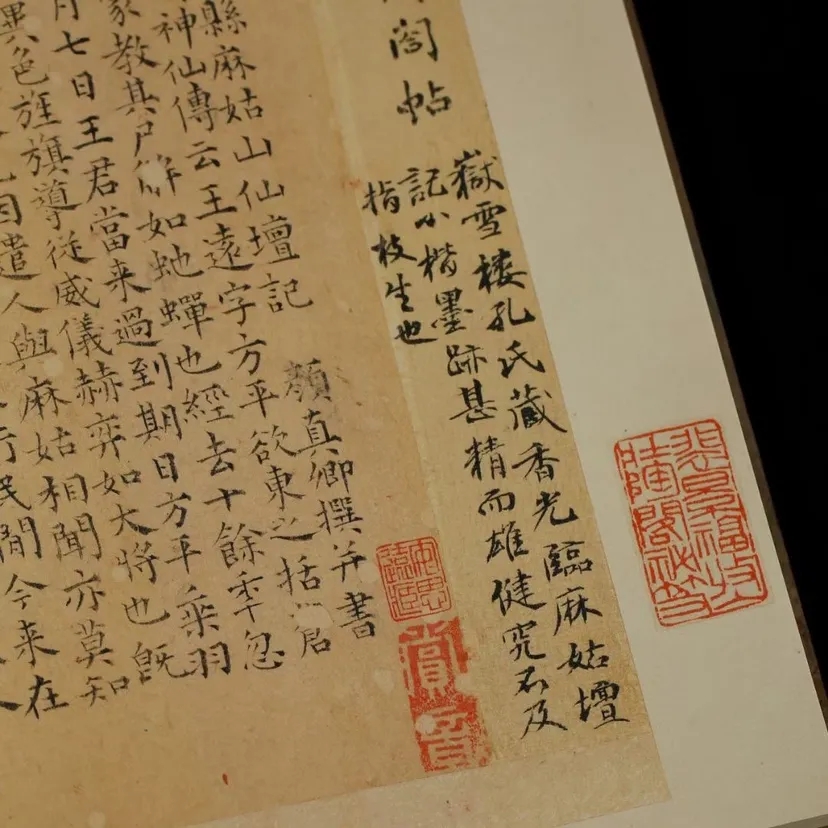 閣帖
嶽雪樓孔氏藏香光臨麻姑壇
記小楷墨跡甚精而雄健究不及
指枝生也
縣麻姑山仙壇記 顏真卿撰并書
神仙傳云王遠字方平欲東之括蒼
家教其尸解如虵蟬也經去十餘年忽
月七日王君當来過到期日方平乘羽
異色旌旗導從威儀赫弈如大將也既
因遣人與麻姑相聞亦莫知
行民間今来在
裴景福收
壯陶閣祕笈